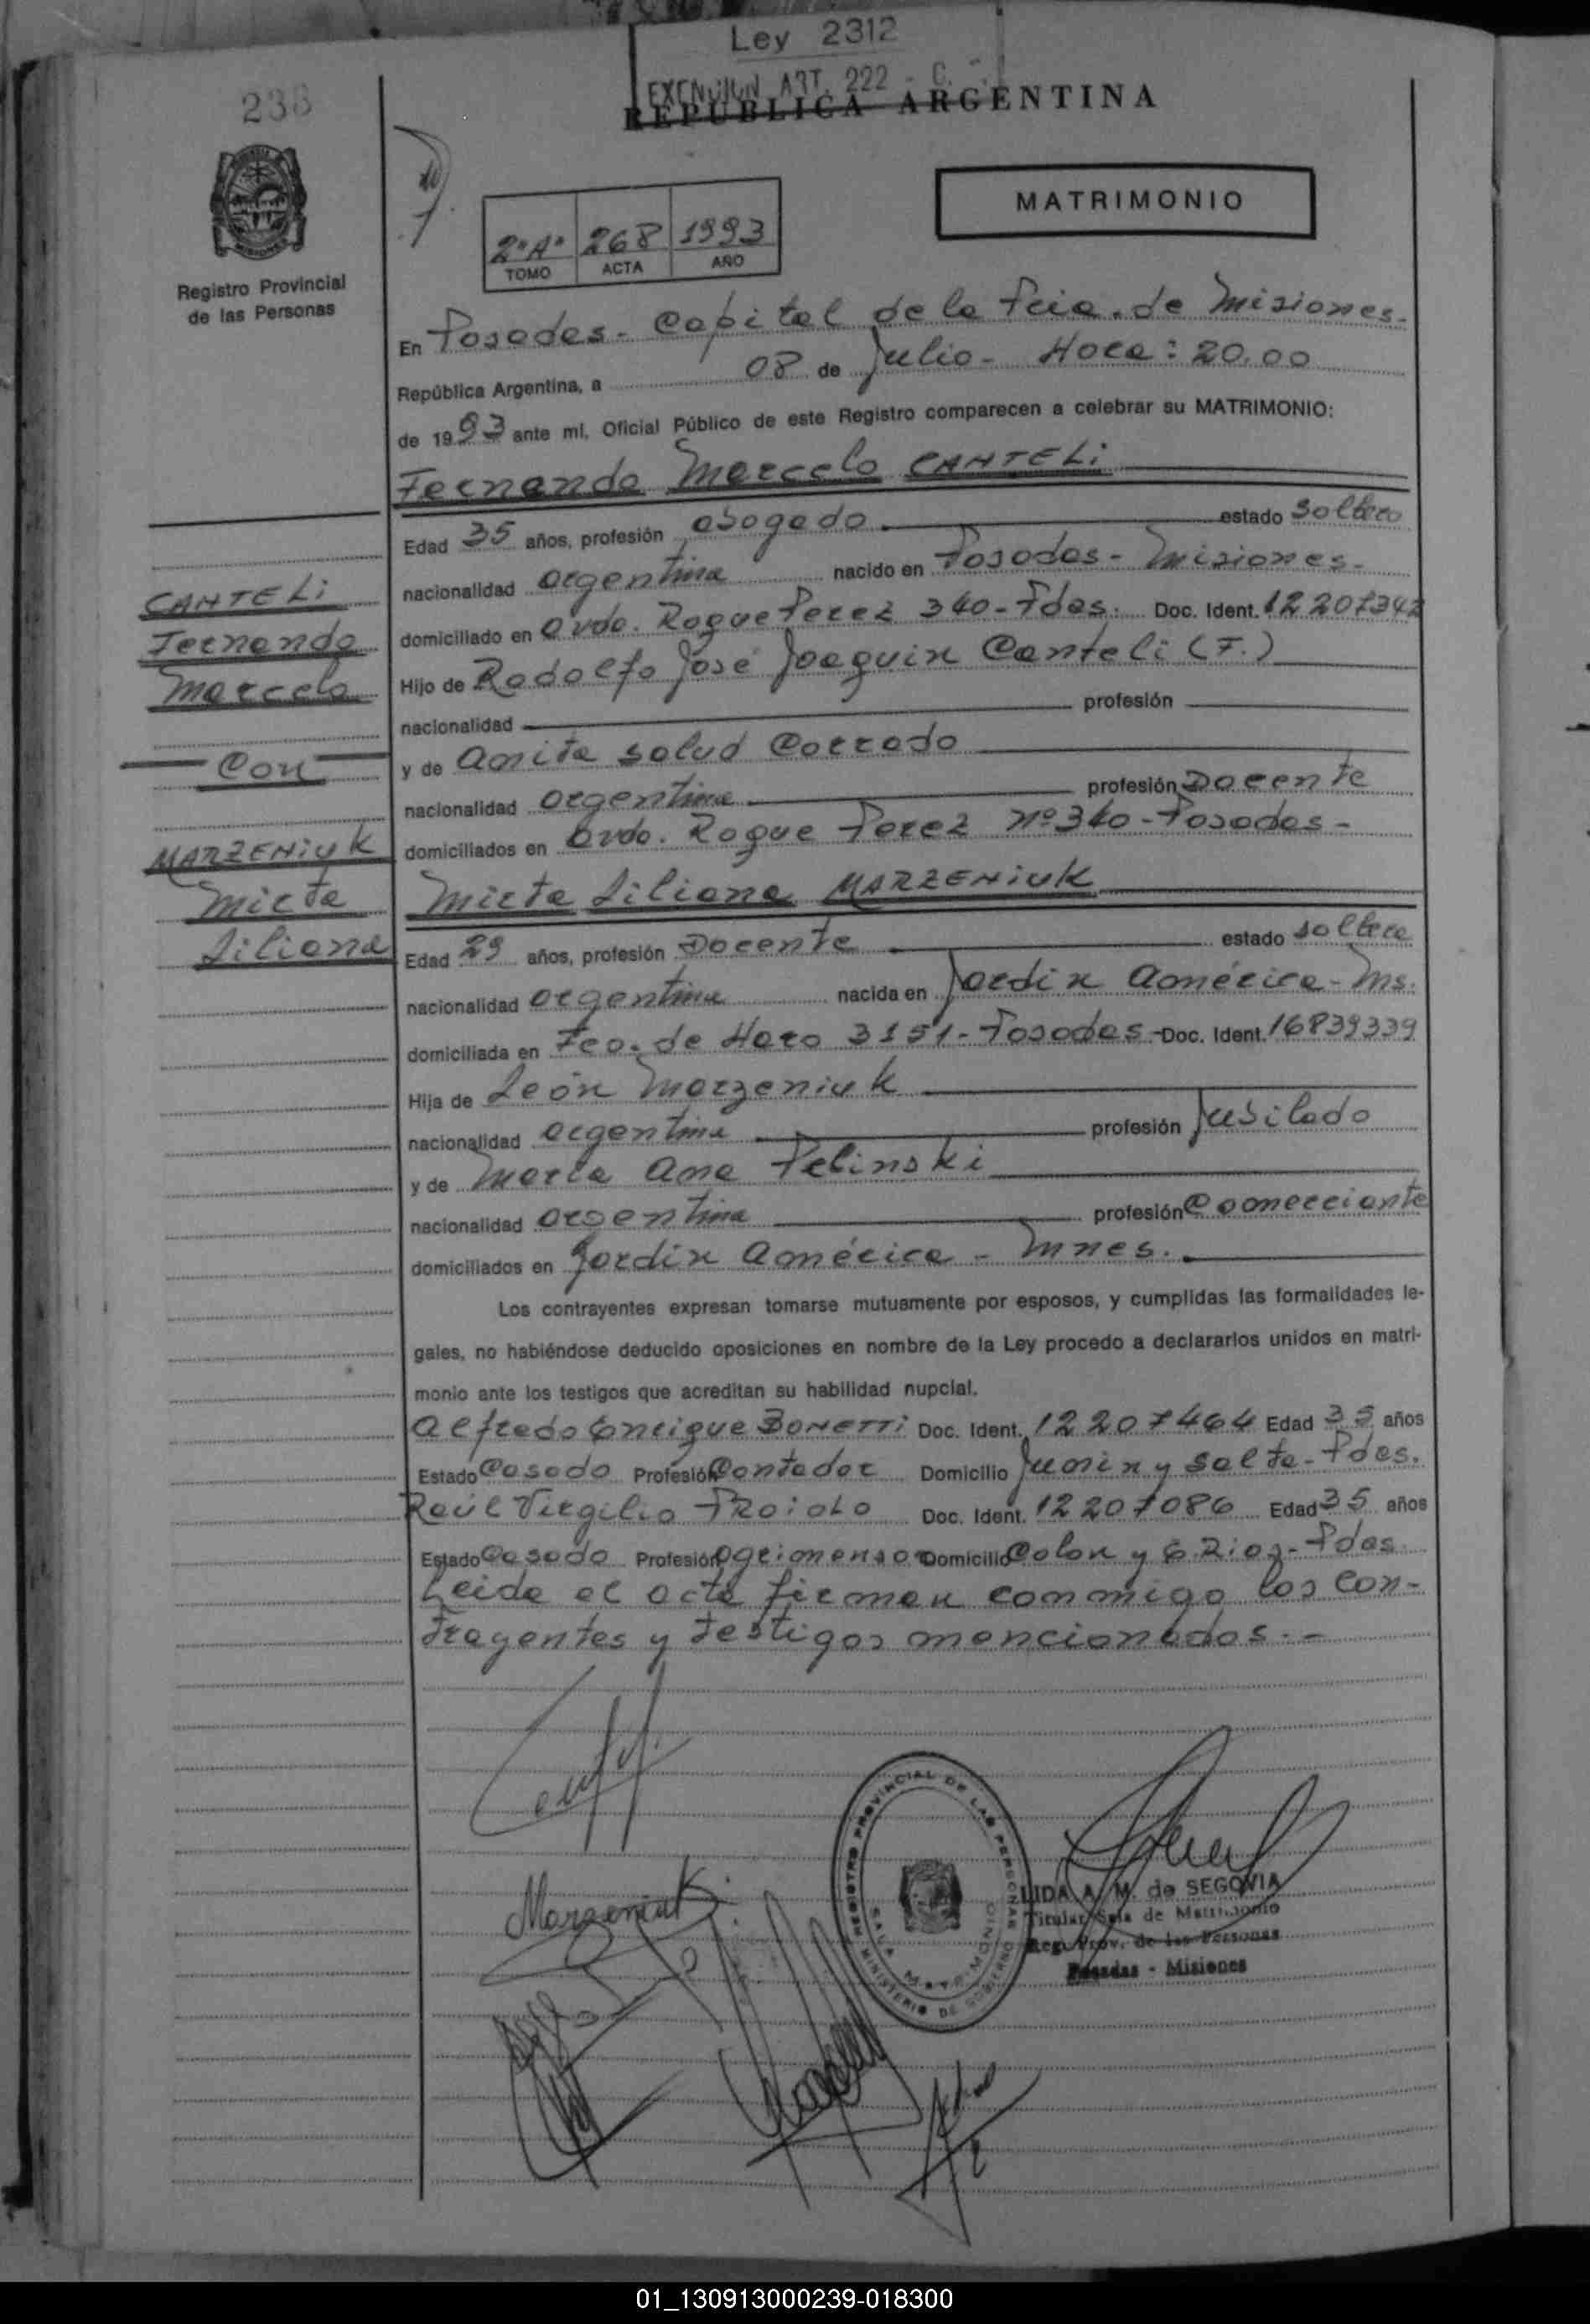 Ley 2312
EXENCION ART. 222 - C.
REPUBLICA ARGENTINA
238
MATRIMONIO
2º"A" 268 1993
TOMO ACTA AÑO
Registro Provincial
de las Personas
En Posadas - Capital de la Pcia. de Misiones -
República Argentina, a 08 de Julio - Hora: 20.00
de 1993 ante mí, Oficial Público de este Registro comparecen a celebrar su MATRIMONIO:
Fernando Marcelo CANTELI
Edad 35 años, profesión abogado estado Soltero
nacionalidad argentina nacido en Posadas - Misiones -
domiciliado en Avda. Roque Perez 340 - Pdas. Doc. Ident. 12207342
Hijo de Rodolfo José Joaquin Canteli (F.)
nacionalidad profesión
y de Anita Salud Corrado
nacionalidad argentina profesión Docente
domiciliados en Avda. Roque Perez Nº 340 - Posadas -
Mirta Liliana MARZENIUK
Edad 29 años, profesión Docente estado soltera
nacionalidad argentina nacida en Jardin América - Ms.
domiciliada en Fco. de Haro 3151 - Posadas - Doc. Ident. 16839339
Hija de León Marzeniuk
nacionalidad argentina profesión Jubilado
y de María Ana Pelinski
nacionalidad argentina profesión Comerciante
domiciliados en Jardin América - Mnes.
Los contrayentes expresan tomarse mutuamente por esposos, y cumplidas las formalidades le-
gales, no habiéndose deducido oposiciones en nombre de la Ley procedo a declararlos unidos en matri-
monio ante los testigos que acreditan su habilidad nupcial.
Alfredo Enrique BONETTI Doc. Ident. 12207464 Edad 35 años
Estado Casado Profesión Contador Domicilio Junin y Salta - Pdas.
Raúl Virgilio TROIOLO Doc. Ident. 12207086 Edad 35 años
Estado Casado Profesión agrimensor Domicilio Colon y E. Rios - Pdas.
Leida el acta firman conmigo los con-
trayentes y testigos mencionados. -
CANTELI
Fernando
Marcelo
Con
MARZENIUK
Mirta
Liliana
Marzeniuk
REGISTRO PROVINCIAL DE LAS PERSONAS
MINISTERIO DE GOBIERNO
SALA MATRIMONIO
LIDA A. M. de SEGOVIA
Titular Sala de Matrimonio
Reg. Prov. de las Personas
Posadas - Misiones
01_130913000239-018300